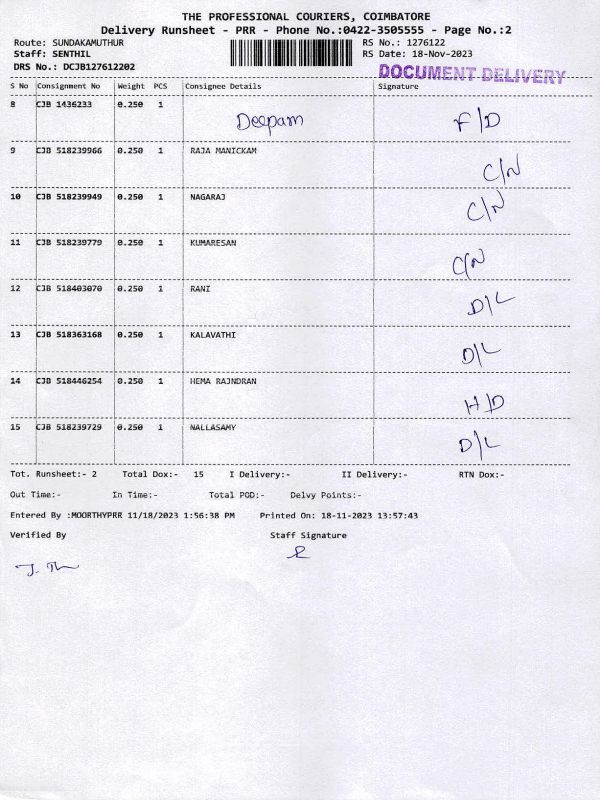 THE PROFESSIONAL COURIERS, COIMBATORE
Delivery Runsheet - PRR - Phone No.:0422-3505555 - Page No.:2
Route: SUNDAKAMUTHUR RS No.: 1276122
Staff: SENTHIL RS Date: 18-Nov-2023
DRS No.: DCJB127612202 DOCUMENT DELIVERY
S No Consignment No Weight PCS Consignee Details Signature
8 CJB 1436233 0.250 1 Deepam F/D
9 CJB 518239966 0.250 1 RAJA MANICKAM C/N
10 CJB 518239949 0.250 1 NAGARAJ C/N
11 CJB 518239779 0.250 1 KUMARESAN C/N
12 CJB 518403070 0.250 1 RANI D/L
13 CJB 518363168 0.250 1 KALAVATHI D/L
14 CJB 518446254 0.250 1 HEMA RAJNDRAN H/D
15 CJB 518239729 0.250 1 NALLASAMY D/L
Tot. Runsheet:- 2 Total Dox:- 15 I Delivery:- II Delivery:- RTN Dox:-
Out Time:- In Time:- Total POD:- Delvy Points:-
Entered By :MOORTHYPRR 11/18/2023 1:56:38 PM Printed On: 18-11-2023 13:57:43
Verified By Staff Signature